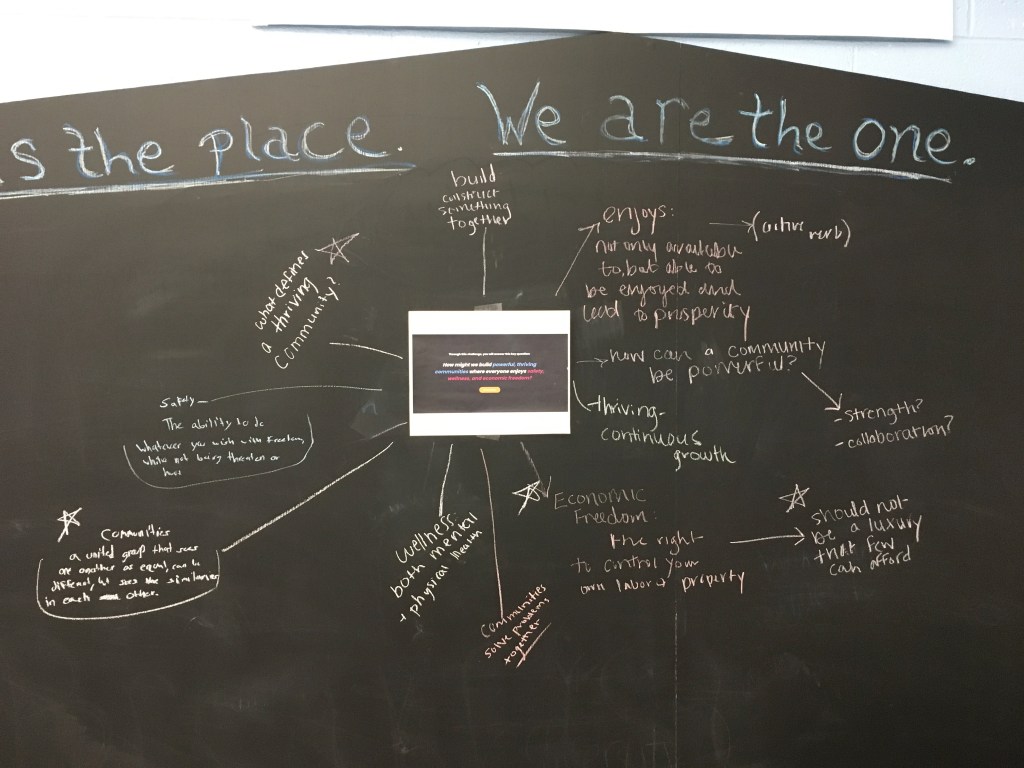 s the place. We are the one.
build
construct
something
together
enjoys: (active verb)
not only available
to, but able to
be enjoyed and
lead to prosperity
a what defines
thriving
community?
Through this challenge, you will answer this key question:
How might we build powerful, thriving
communities where everyone enjoys safety,
wellness, and economic freedom?
how can a community
be powerful?
- strength?
- collaboration?
thriving-
continuous
growth
Safety
The ability to do
Whatever you wish with freedom,
while not being threaten or
Communities
a united group that sees
one another as equal, can be
different, but sees the
in each other.
Wellness:
both mental
+ physical health
Communities
solve problems
together
Economic
Freedom:
the right
to control your
own labor + property
should not
be a luxury
that few
can afford